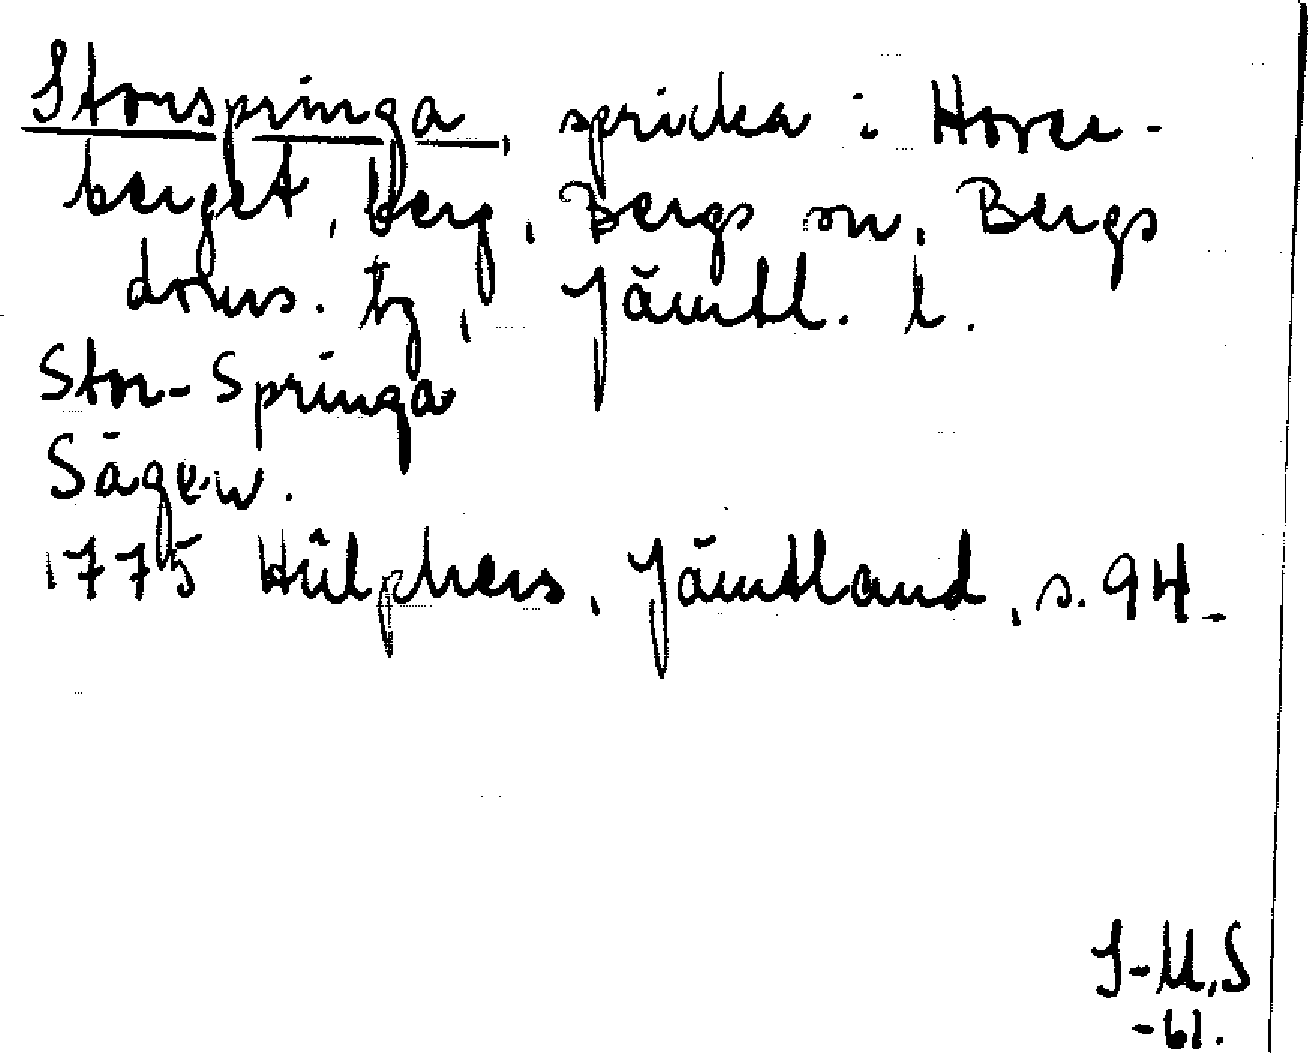 Storspringa, spricka i Hovre-
berget, berg, Bergs sn, Bergs
doms. tg, Jämtl. l.
Stor-Springa
Sägen.
1775 Hülphers, Jämtland, s. 94.
I-M,S
-61.